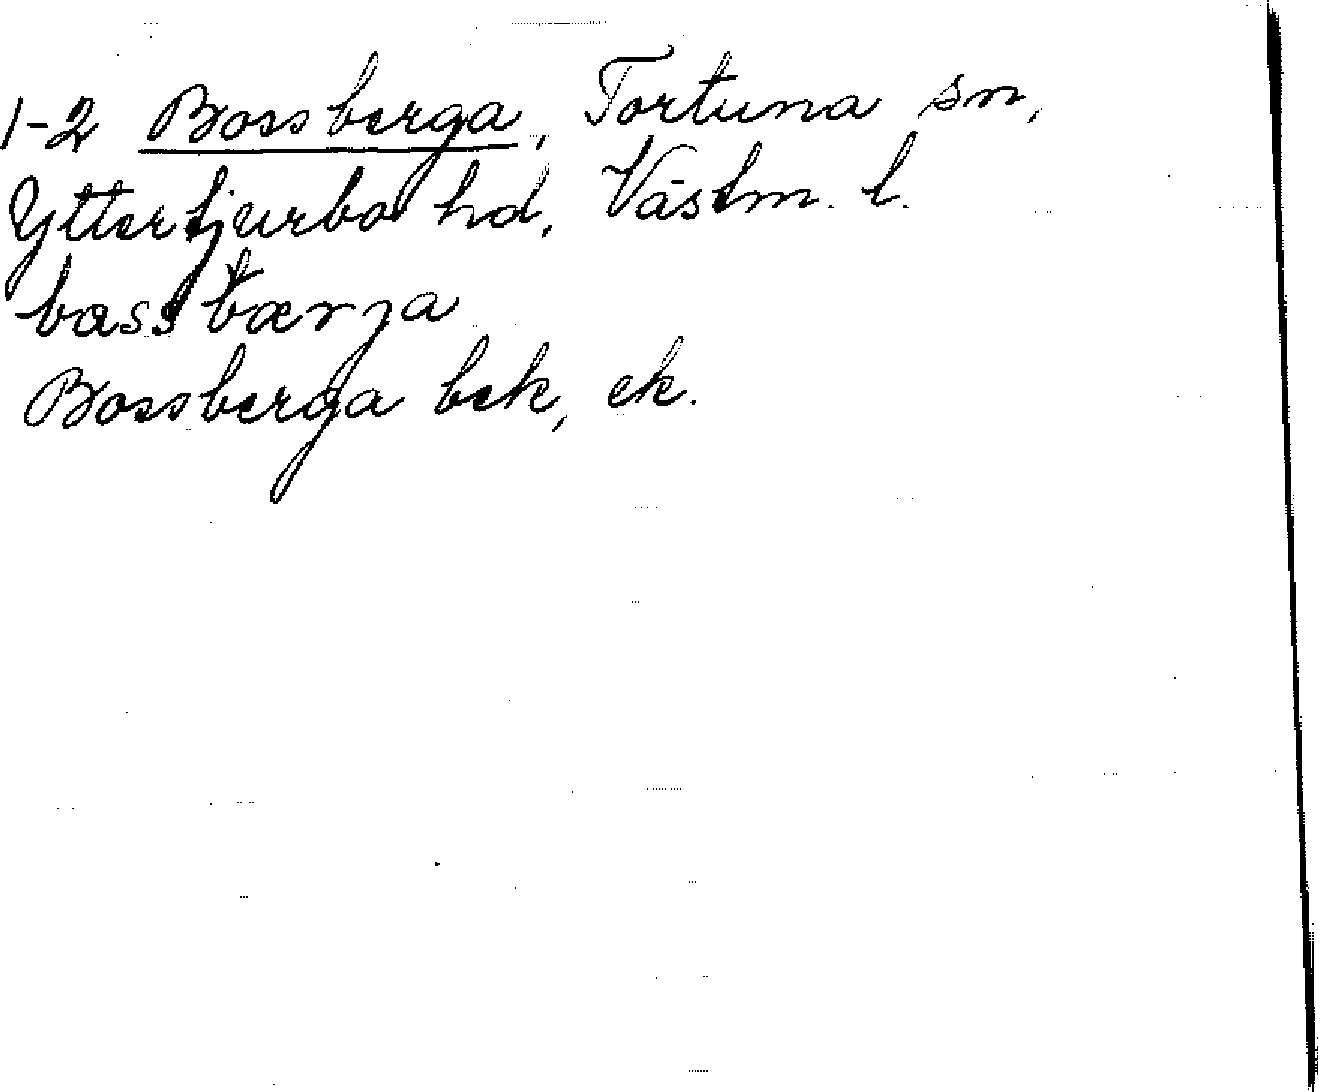 1-2 Bossberga, Tortuna sn,
Yttertjurbo hd, Västm. l.
bassbærja
Bossberga bek, ek.